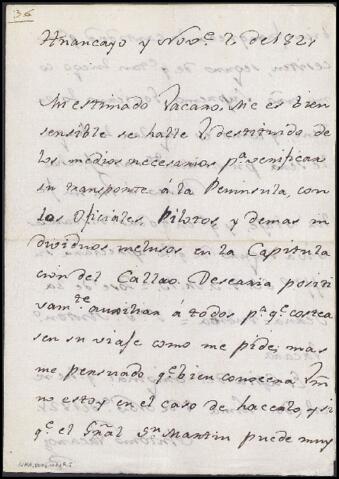 36
Huancayo y Nov.e 2 de 1821
Mi estimado Vacaro. Me es bien
sensible se halle V. destituido de
los medios necesarios p.a verificar
su transporte á la Peninsula, con
los Oficiales, Pilotos y demas in
dividuos inclusos en la Capitula
cion del Callao. Desearia positi
vam.te auxiliar á todos p.a q.e costea
sen su viaje como me pide; mas
me persuado q.e bien conocera Vm
no estoy en el caso de hacerlo, y si
q.e el Gñal S.n Martin puede muy